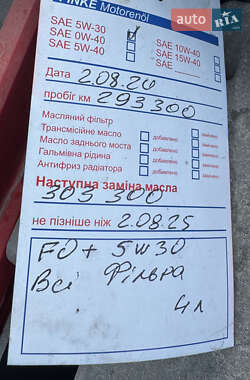 AUTO RIA
PINKE Motorenöl
SAE 5W-30
SAE 0W-40
SAE 5W-40
SAE 10W-40
SAE 15W-40
SAE
Дата 2.08.24
пробіг км 293300
Масляний фільтр
Трансмісійне масло добавлено замінено
Масло заднього моста добавлено замінено
Гальмівна рідина добавлено замінено
Антифриз радіатора добавлено замінено
Наступна заміна масла
303 300
не пізніше ніж 2.08.25
FO + 5W30
Всі Фільра
4л